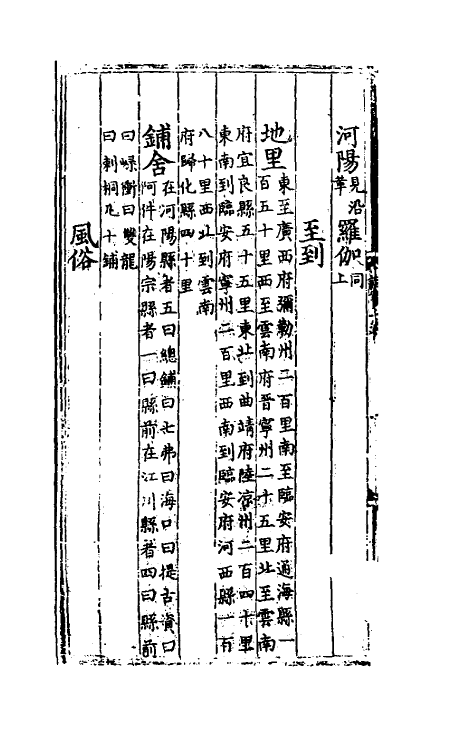 河陽見沿革羅伽同上
至到
地里東至廣西府彌勒州二百里南至臨安府通海縣一
百五十里西至雲南府晉寧州二十五里北至雲南
府宜良縣五十五里東北到曲靖府陸涼州二百四十里
東南到臨安府寧州二百里西南到臨安府河西縣一百
八十里西北到雲南
府歸化縣四十里
鋪舍在河陽縣者五曰總鋪曰七弗曰海口曰提古資曰
阿件在陽宗縣者一曰縣前在江川縣者四曰縣前
曰嵥衝曰雙龍
曰刺桐凡十鋪
風俗